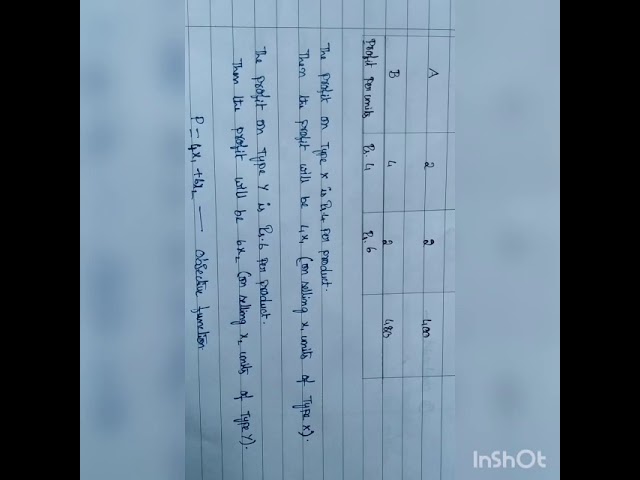 A 2 2 400
B 4 2 480
Profit per units Rs. 4 Rs. 6
The profit on Type X is Rs.4 per product.
Then the profit will be 4x₁ (on selling x₁ units of Type X).
The profit on Type Y is Rs.6 per product.
Then the profit will be 6x₂ (on selling x₂ units of Type Y).
P = 4x₁ + 6x₂ — objective function
InShOt